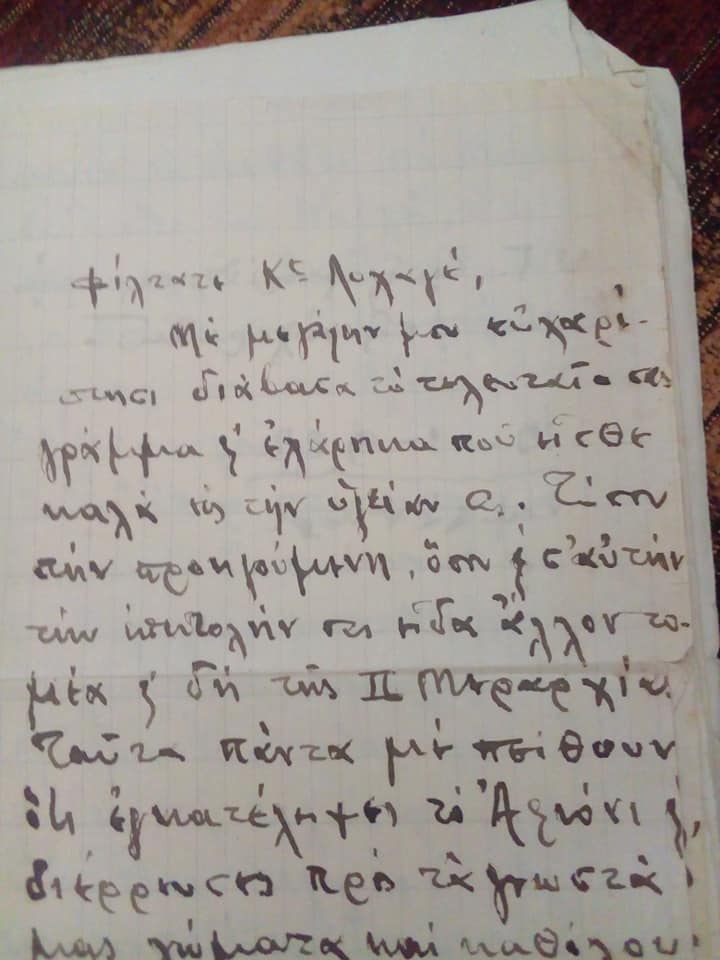 Φίλτατε Κε Λοχαγέ,
Μὲ μεγάλην μου εὐχαρί-
στησι διάβασα τὸ τελευταῖο σας
γράμμα κ' ἐχάρηκα ποὺ εἶσθε
καλὰ εἰς τὴν ὑγείαν σας. Τόσον
στὴν προηγούμενη, ὅσον κ' σ' αὐτὴν
τὴν ἐπιστολήν σας εἶδα ἄλλον το-
μέα κ' δὴ τῆς ΙΙ Μεραρχίας.
Ταῦτα πάντα μὲ πείθουν
ὅτι ἐγκατέλειψες τὸ Ἀξιόνι κ'
διέρρευσες πρὸς τὰ γνωστὰ
μας χώματα καὶ καθόλου